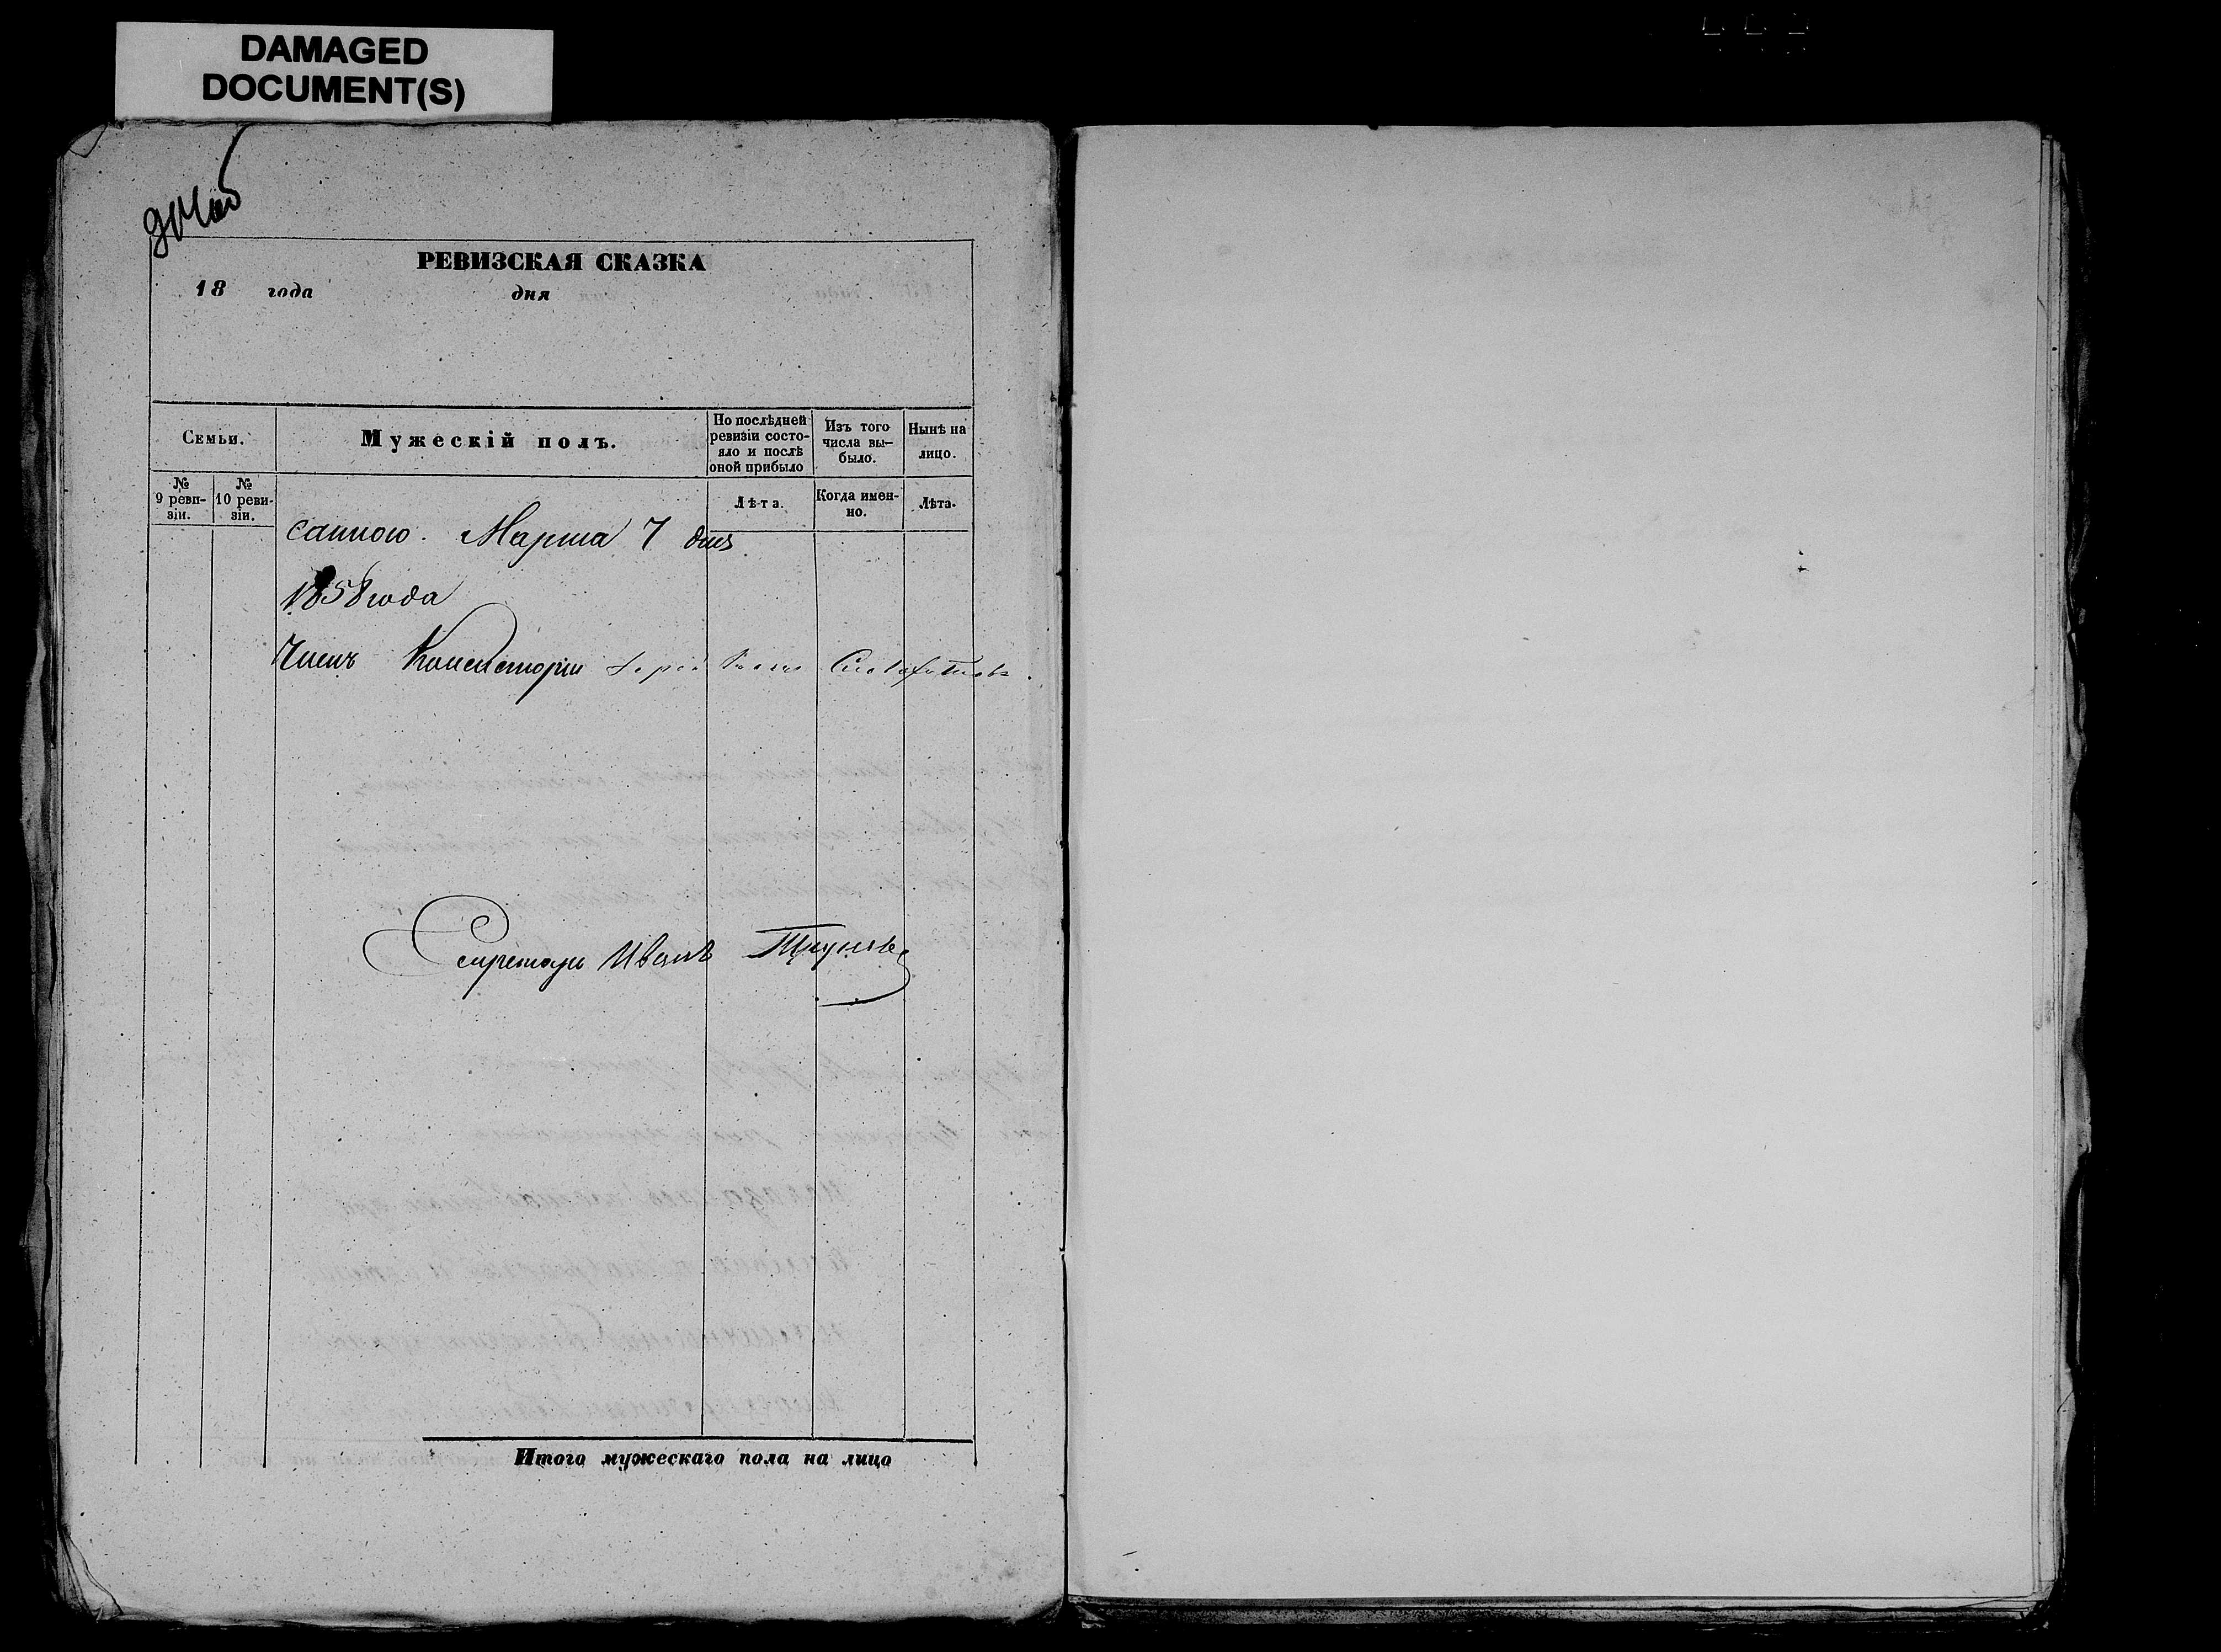 DAMAGED
DOCUMENT(S)
РЕВИЗСКАЯ СКАЗКА
18 года дня
Семьи.
Мужескій полъ.
По послѣдней ревизіи состо-
яло и послѣ
оной прибыло
Изъ того
числа вы-
было.
Нынѣ на
лицо.
№
9 реви-
зіи.
№
10 реви-
зіи.
Лѣта.
Когда имен-
но.
Лѣта.
санною. Марта 7 дня
1858 года
Членъ Консисторіи
Секретарь Иванъ
Итого мужескаго пола на лицо